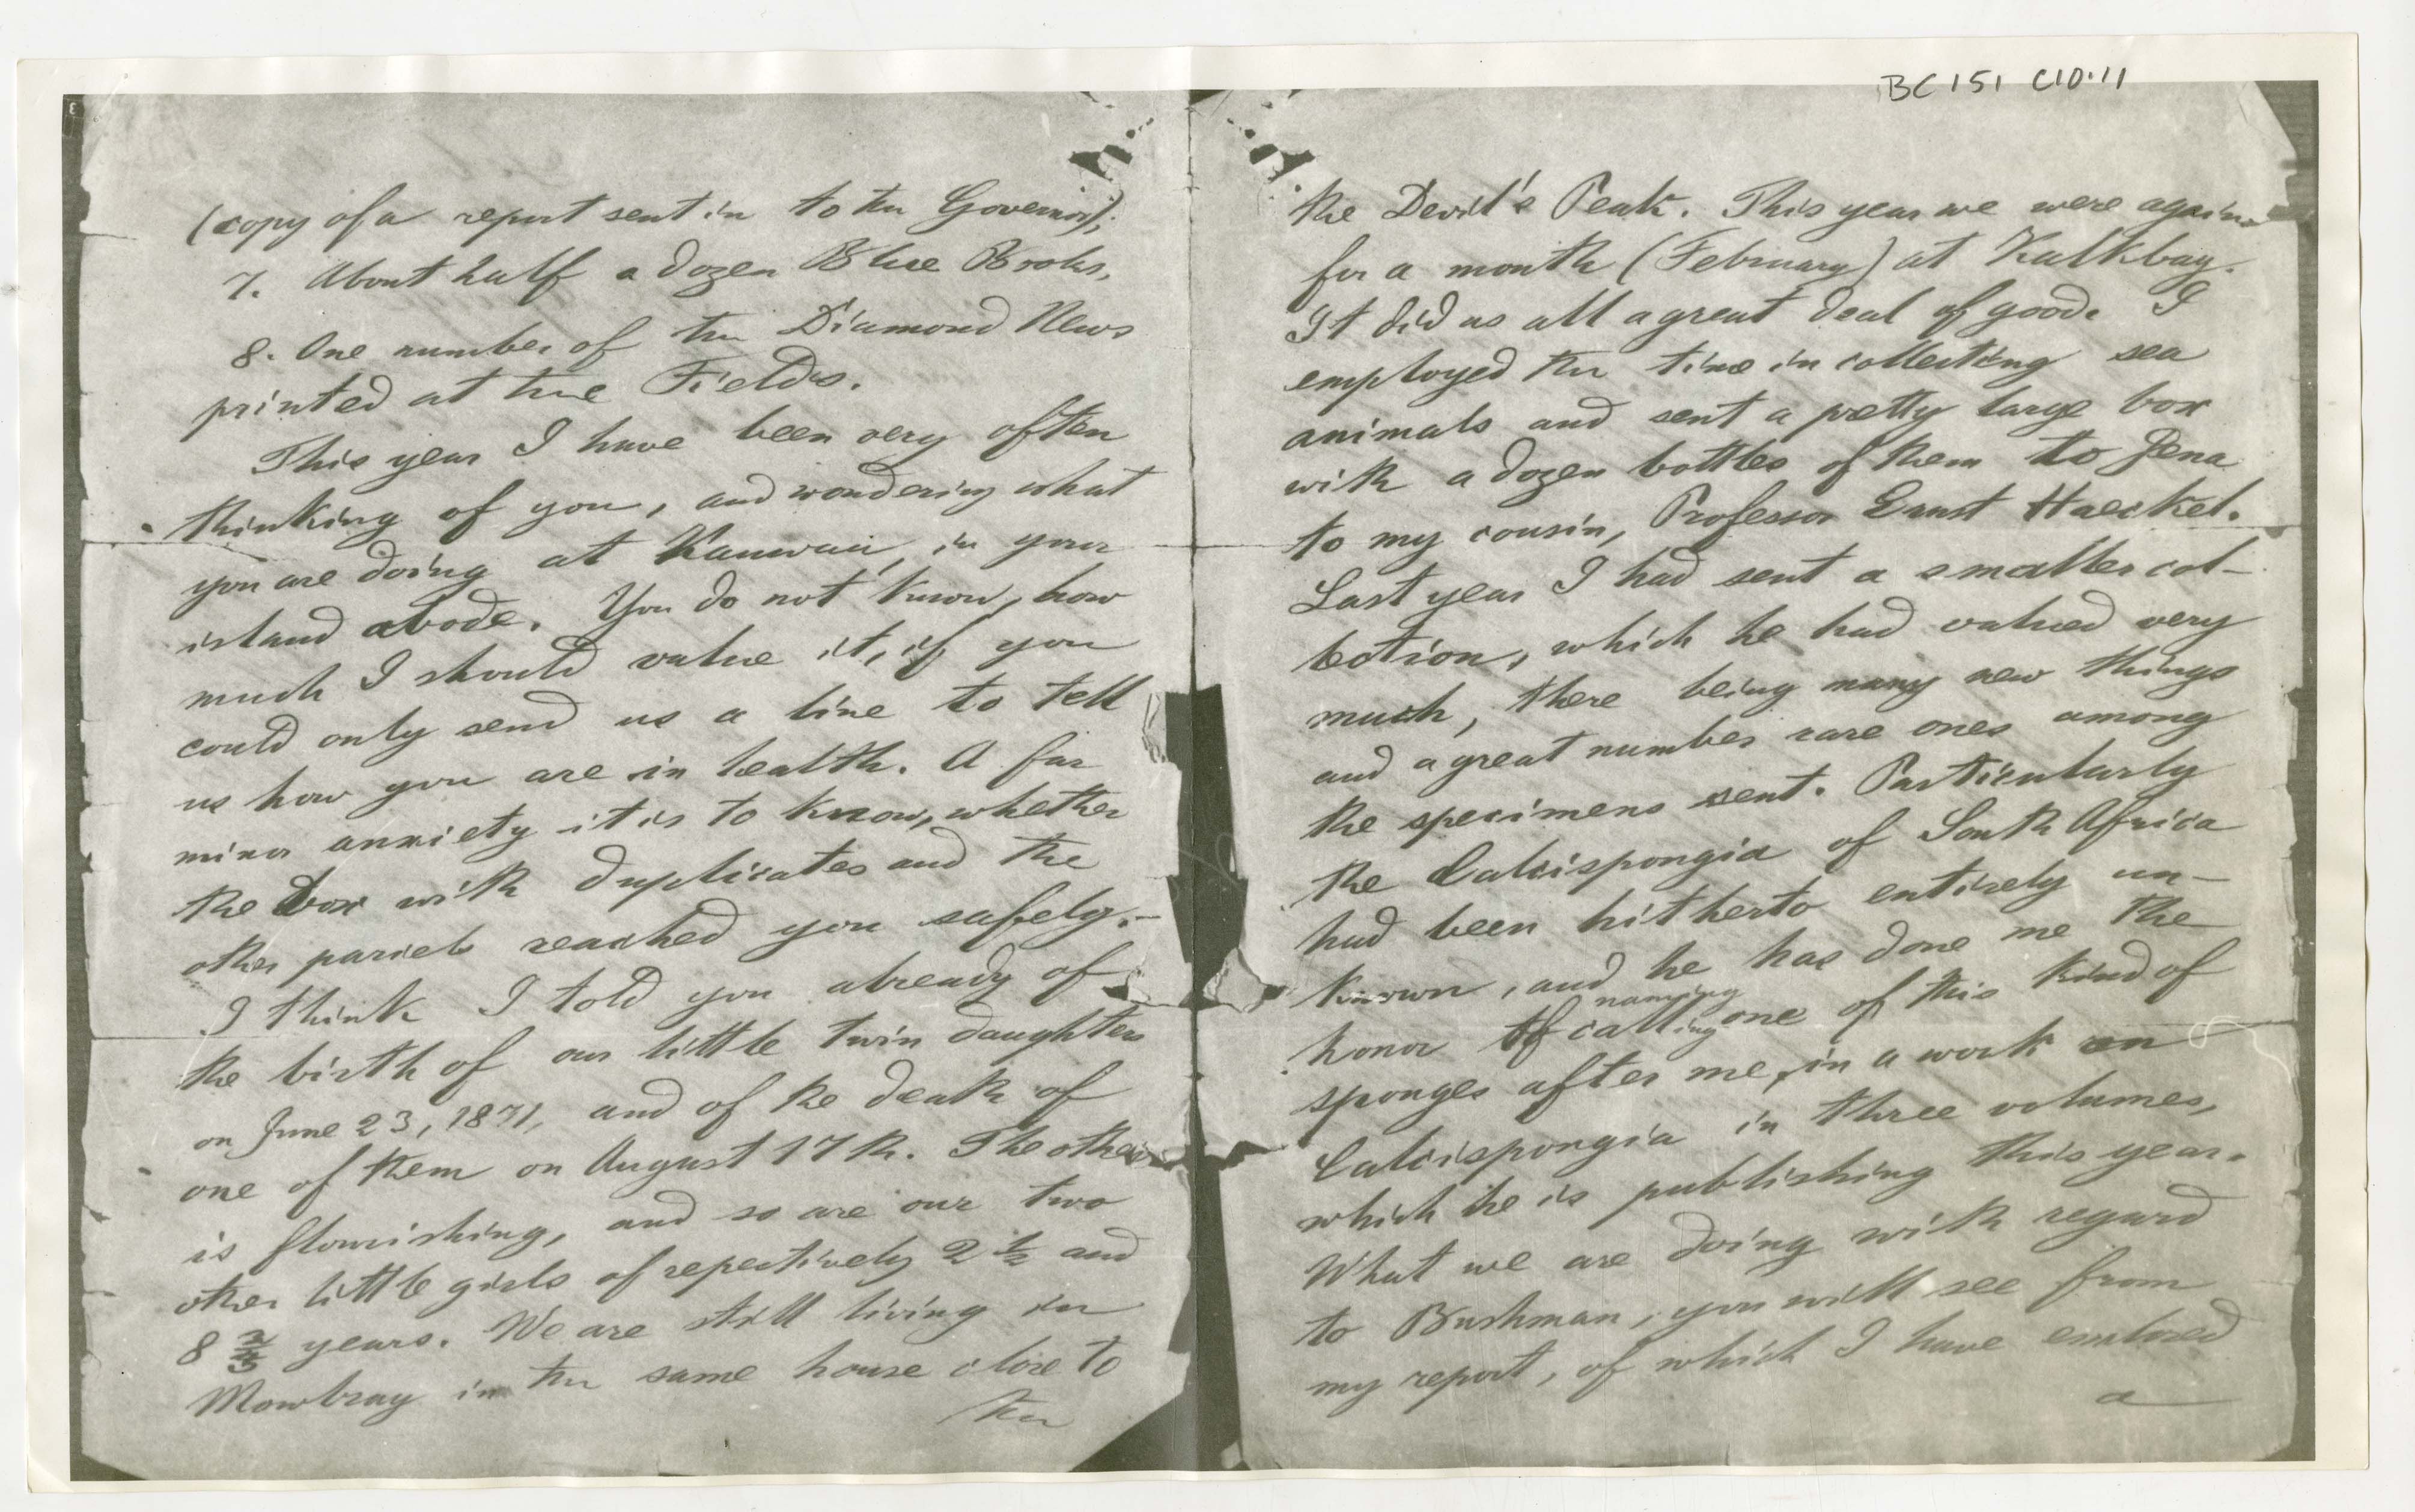 BC 151 C10.11
(copy of a report sent in to the Governor);
7. About half a dozen Blue Books,
8. One number of the Diamond News
printed at the Fields.
This year I have been very often
thinking of you, and wondering what
you are doing at Kauwaii, in your
island abode. You do not know, how
much I should value it, if you
could only send us a line to tell
us how you are in health. A far
minor anxiety it is to know, whether
the box with duplicates and the
other parcels reached you safely.–
I think I told you already of
the birth of our little twin daughters
on June 23, 1871, and of the death of
one of them on August 17th. The other
is flourishing, and so are our two
other little girls of repectively 2 1/2 and
8 years. We are still living in
Mowbray in the same house close to
the
the Devil's Peak. This year we were again
for a month (February) at Kalkbay.
It did us all a great deal of good. I
employed the time in collecting sea
animals and sent a pretty large box
with a dozen bottles of them to Jena
to my cousin, Professor Ernst Haeckel.
Last year I had sent a smaller col-
lection, which he had valued very
much, there being many new things
and a great number rare ones among
the specimens sent. Particularly
the Calcispongia of South Africa
had been hitherto entirely un-
known, and he has done me the
naming
honor of calling one of this kind of
sponges after me, in a work on
Calcispongia in three volumes,
which he is publishing this year.
What we are doing with regard
to Bushman, you will see from
my report, of which I have enclosed
a